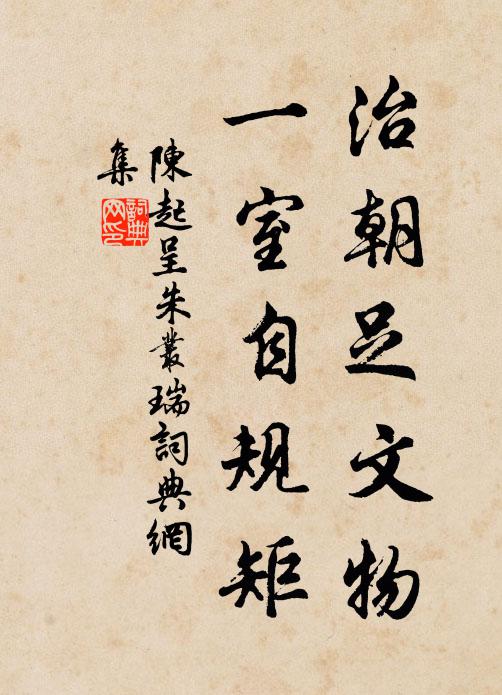 治朝足文物
一室自規矩
陳起呈朱叢瑞詞典網
集
詞典網印